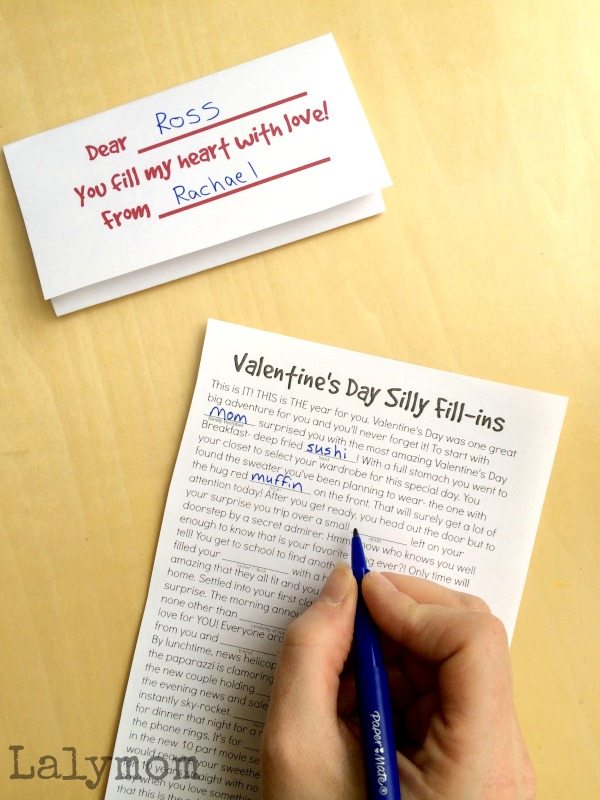 Dear Ross
You fill my heart with love!
From Rachael
Valentine's Day Silly Fill-ins
This is IT! THIS is THE year for you. Valentine's Day was one great
big adventure for you and you'll never forget it! To start with
mom surprised you with the most amazing Valentine's Day
Breakfast- deep fried sushi! With a full stomach you went to
your closet to select your wardrobe for this special day. You
found the sweater you've been planning to wear- the one with
the hug red muffin on the front. That will surely get a lot of
attention today! After you get ready, you head out the door but to
your surprise you trip over a small ______ left on your
doorstep by a secret admirer. Hmm
enough to know that is your favorite ever?! Only time will
tell! You get to school to find
filled your ______ with a
amazing that they all fit and you
home. Settled into your first
surprise. The morning
none other than ______
love for YOU! Everyone
from you and ______
By lunchtime, news
the paparazzi is clamoring
the new couple holding
the evening news and
instantly sky-rocket
for dinner that night for a
the phone rings. It's for
in the new 10 part movie
would
years straight with no
when you love
that this is
Paper Mate
Lalymom